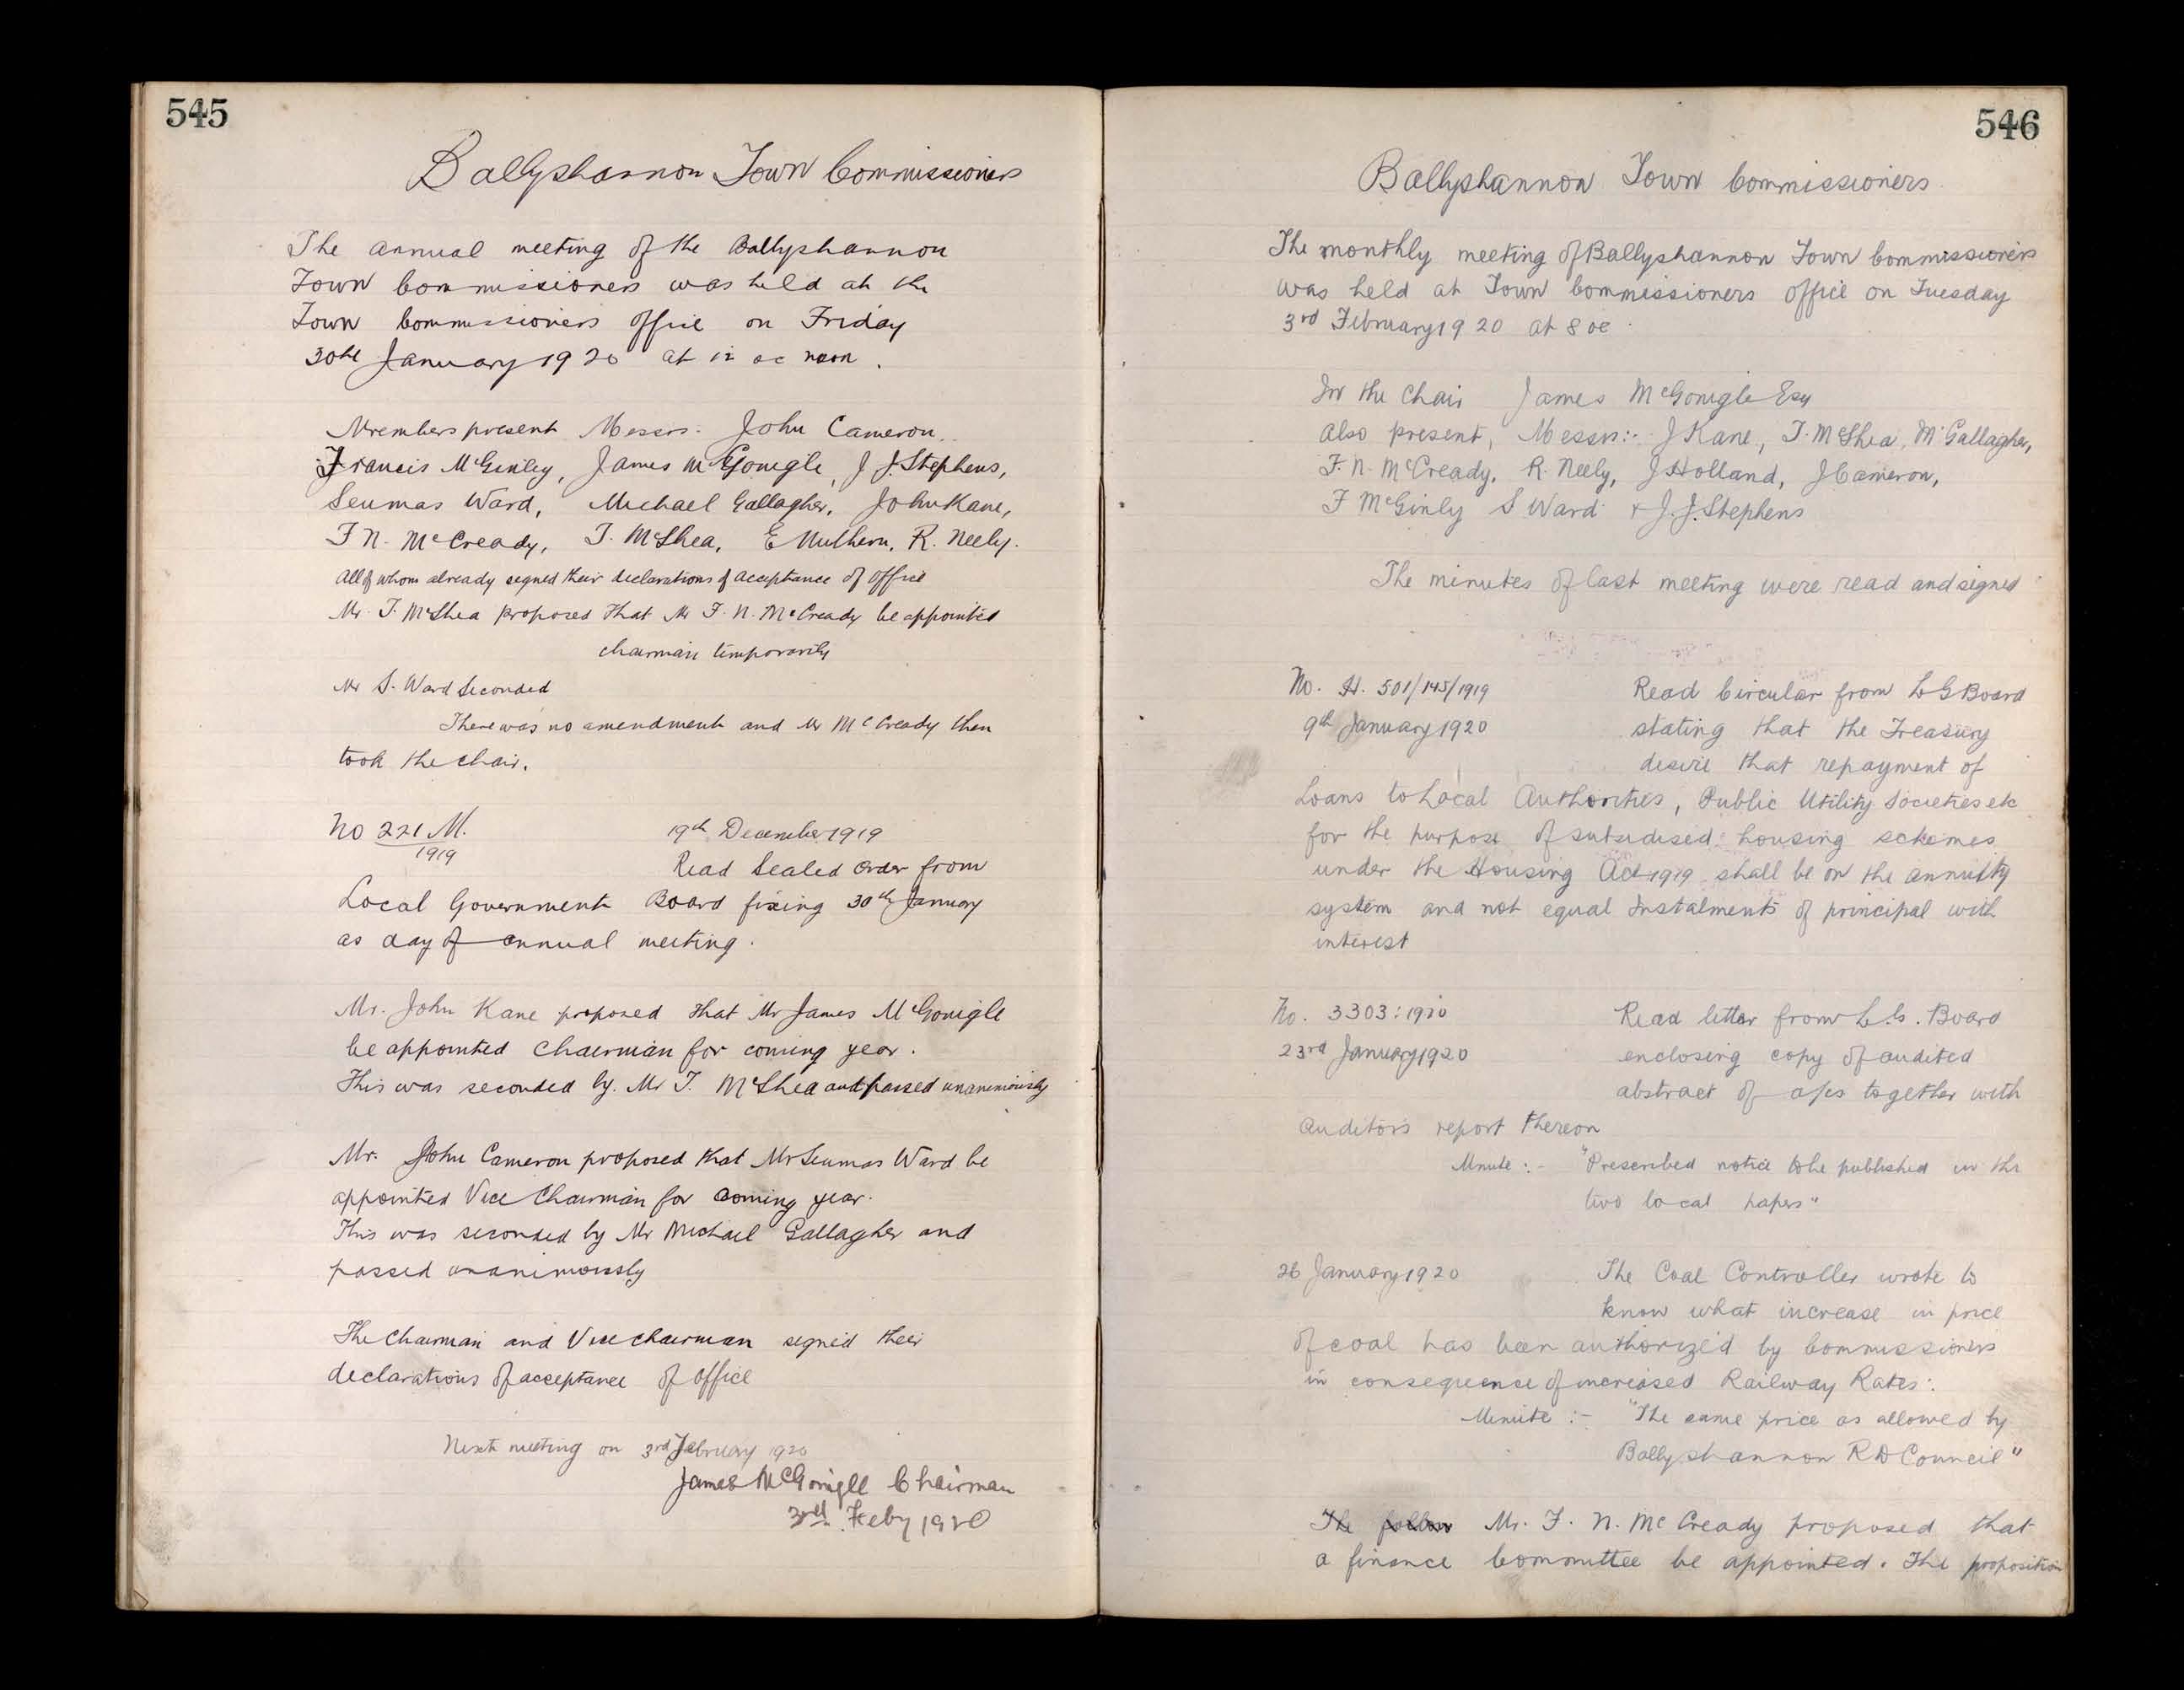 545
Ballyshannon Town Commissioners
The annual meeting of the Ballyshannon
Town Commissioners was held at the
Town Commissioners office on Friday
30th January 1920 at 12 oc noon.
Members present Messrs. John Cameron,
Francis McGinley, James McGonigle, J J. Stephens,
Seumas Ward, Michael Gallagher, John Kane,
F N. McCready, T. McShea, E Mulhern, R. Neely.
All of whom already signed their declarations of acceptance of office
Mr. T. McShea proposed that Mr F. N. McCready be appointed
chairman temporarily
Mr S. Ward Seconded
There was no amendment and Mr McCready then
took the chair.
No 221 M.
1919
19th December 1919
Read Sealed order from
Local Government Board fixing 30th January
as day of annual meeting.
Mr. John Kane proposed that Mr James McGonigle
be appointed Chairman for coming year.
This was seconded by. Mr T. McShea and passed unanimously
Mr. John Cameron proposed that Mr Seumas Ward be
appointed Vice Chairman for coming year.
This was seconded by Mr Michael Gallagher and
passed unanimously
The Chairman and Vice chairman signed their
declarations of acceptance of office
Next meeting on 3rd February 1920
James McGonigle Chairman
3rd. Feby 1920
546
Ballyshannon Town Commissioners.
The monthly meeting of Ballyshannon Town Commissioners
was held at Town Commissioners office on Tuesday
3rd February 1920 at 8 oc.
In the Chair James McGonigle Esq
Also present, Messrs:- J Kane, T. McShea, M Gallagher,
F. N. McCready, R. Neely, J Holland, J Cameron,
F McGinly S Ward & J. J. Stephens
The minutes of last meeting were read and signed
No. H. 501/145/1919
9th January 1920
Read Circular from L G Board
stating that the Treasury
desire that repayment of
Loans to Local Authorities, Public Utility Societies etc
for the purpose of subsidised housing schemes
under the Housing Act 1919 shall be on the annuity
system and not equal Instalments of principal with
interest
No. 3303:1920
23rd January 1920
Read letter from L. G. Board
enclosing copy of audited
abstract of a/cs together with
auditors report thereon
Minute:- "Prescribed notice to be published in the
two local papers"
26 January 1920
The Coal Controller wrote to
know what increase in price
of coal has been authorized by Commissioners
in consequence of increased Railway Rates:.
Minute:- "The same price as allowed by
Ballyshannon R D Council"
The follow Mr. F. N. McCready proposed that
a finance Committee be appointed. The proposition